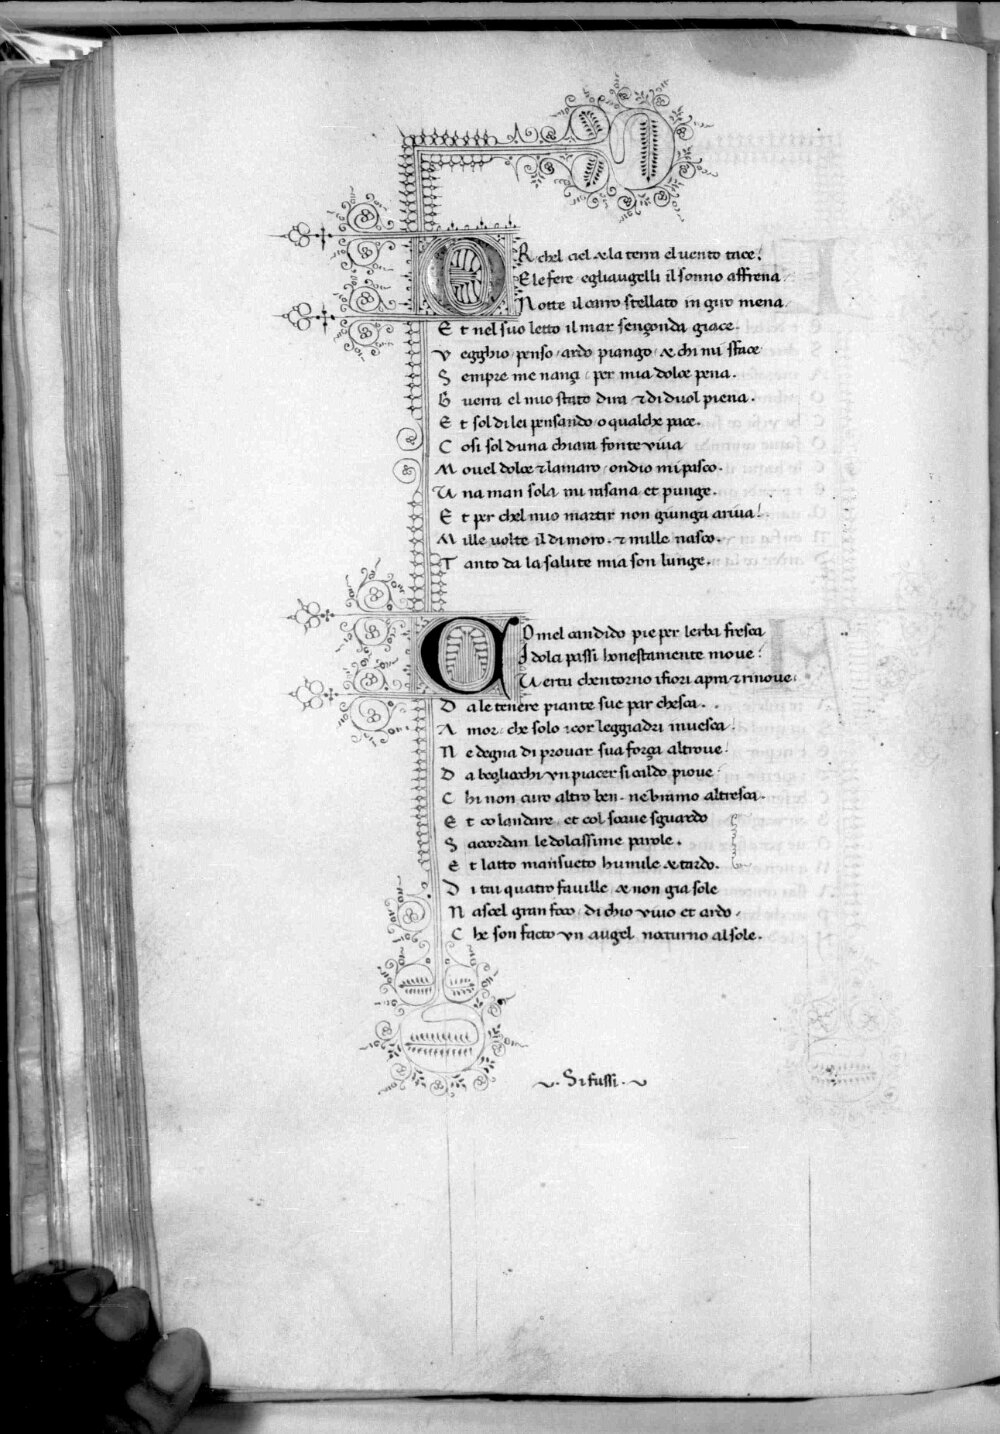 OR chel ciel & la terra el uento tace!
E le fere egliaugelli il sonno affrena
Notte il carro stellato in giro mena
E t nel suo letto il mar sençonda giace.
V egghio penso ardo piango & chi mi sface
S empre me nançi per mia dolce pena.
G uerra el mio stato dira & di duol piena.
E t sol di lei pensando o qualche pace.
C osi sol duna chiara fonte viva
M ovel dolce & lamaro ondio mi pasco.
U na man sola mi risana et punge.
E t per chel mio martir non giunga ariua!
M ille uolte il di moro. & mille nasco.
T anto da la salute mia son lunge.
COmel candido pie per lerba fresca
I dolci passi honestamente move!
Uertu chentorno ifiori apra & rinove
D a le tenere piante sue par chesca.
A mor che solo i cor leggiadri inuesca
N e degna di prouar sua força altroue
D a begliocchi vn piacer si caldo pioue
C hi non curo altro ben. ne bramo altresca.
E t co landare et col soaue sguardo
S accordan le dolcissime parole.
E t latto mansueto humile & tardo.
D i tai quatro fauille & non gia sole
N ascel gran foco di chio vivo et ardo
C he son facto vn augel nocturno al sole.
Si fussi.